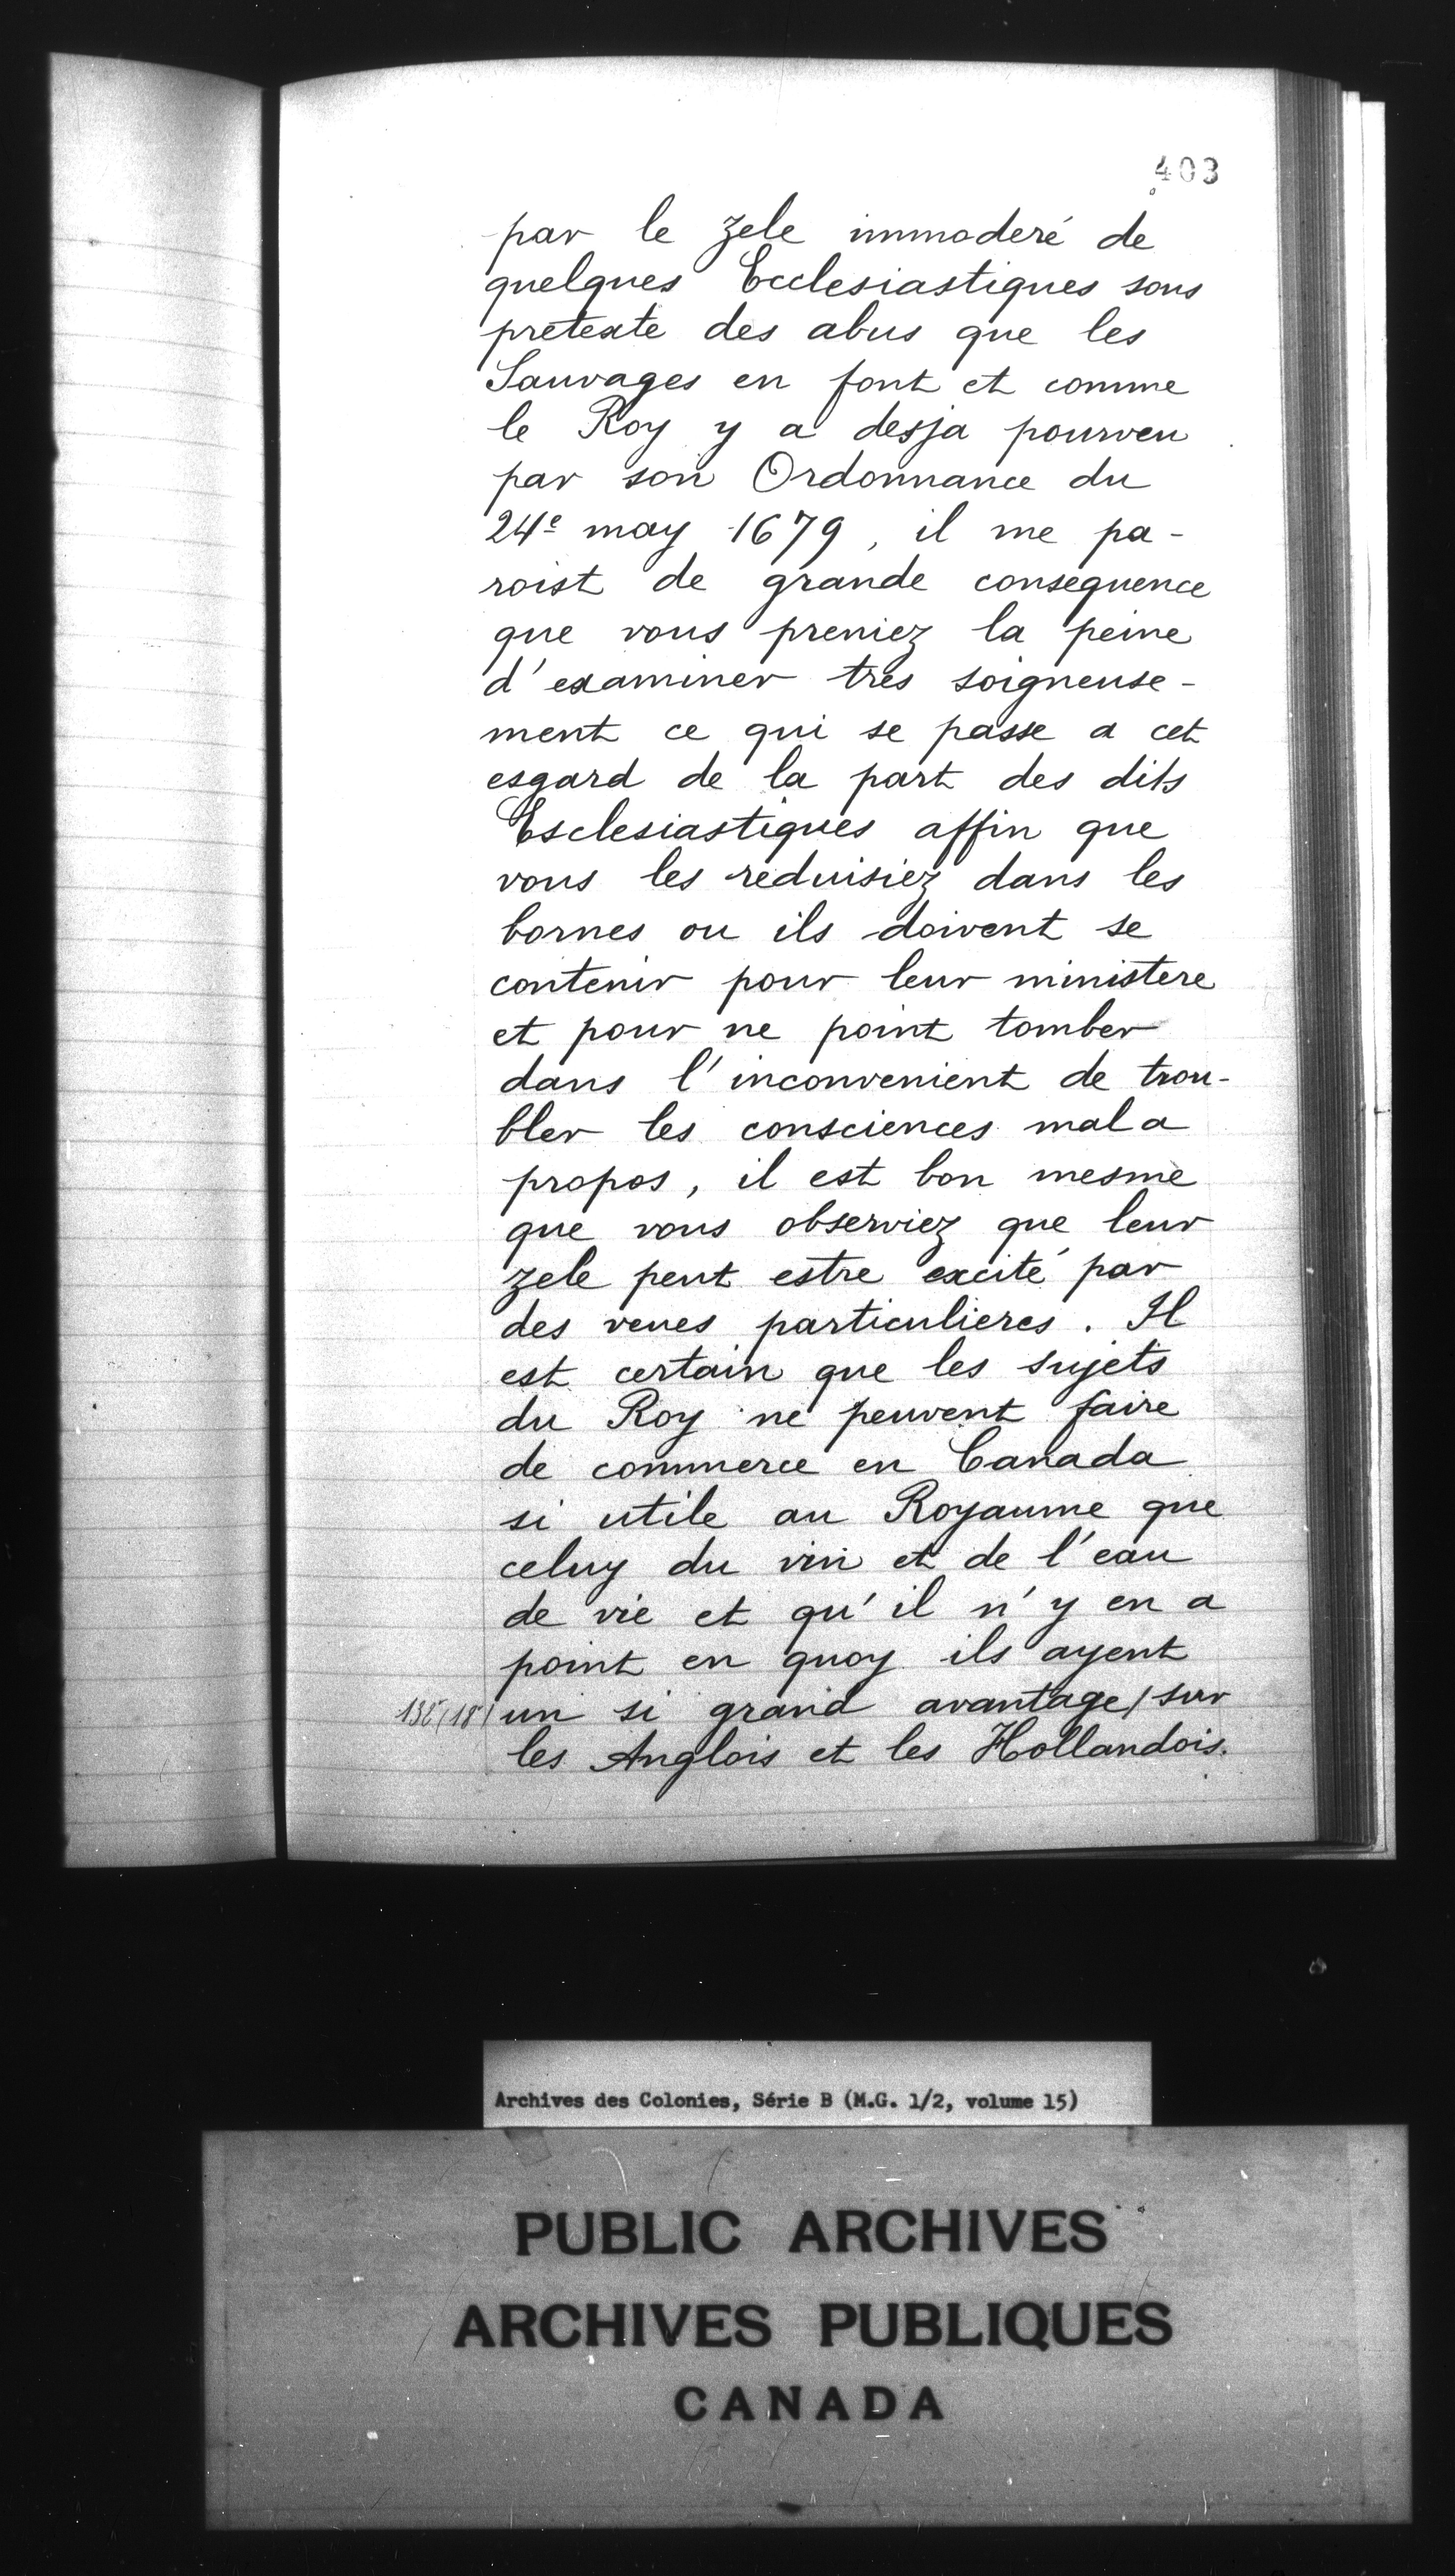 403
par le zele immoderé de
quelques Ecclesiastiques sous
pretexte des abus que les
Sauvages en font et comme
le Roy y a desja pourveu
par son Ordonnance du
24e may 1679, il me pa-
roist de grande consequence
que vous preniez la peine
d'examiner tres soigneuse-
ment ce qui se passe a cet
esgard de la part des dits
Esclesiastiques affin que
vous les reduisiez dans les
bornes ou ils doivent se
contenir pour leur ministere
et pour ne point tomber
dans l'inconvenient de trou-
bler les consciences mal a
propos, il est bon mesme
que vous observiez que leur
zele peut estre excité par
des veues particulieres. Il
est certain que les sujets
du Roy ne peuvent faire
de commerce en Canada
si utile au Royaume que
celuy du vin et de l'eau
de vie et qu'il n'y en a
point en quoy ils ayent
un si grand avantage / sur
les Anglois et les Hollandois.
Archives des Colonies, Série B (M.G. 1/2, volume 15)
PUBLIC ARCHIVES
ARCHIVES PUBLIQUES
CANADA